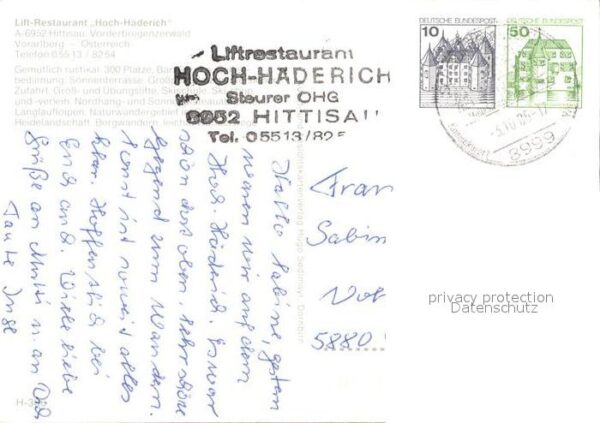 Lift-Restaurant „Hoch-Häderich"
A-6952 Hittisau, Vorderbregenzerwald
Vorarlberg – Österreich
Telefon 05513 / 8254
Gemütlich rustikal, 300 Plätze,
bedienung, Sonnenterrasse,
Zufahrt. Groß- und Übungslifte, Skischule,
und -verleih. Nordhang- und
Langlaufloipen, Naturwandergebiet
Heidelandschaft. Bergwandern
Liftrestaurant
HOCH-HÄDERICH
Steurer OHG
6952 HITTISAU
Tel. 05513/825
DEUTSCHE BUNDESPOST
10
DEUTSCHE BUNDESPOST
50
8999
Hallo Sabine, gestern
waren wir auf dem
Hoch Häderich. Es war
schön dort oben. Sehr schöne
Gegend zum Wandern.
Sonst ist soweit alles
klar. Hoffentlich bei
Euch auch. Viele liebe
Grüße an Mutti u. an Dich
Tante Inge
Fran
Sabin
5880
H-3
privacy protection
Datenschutz